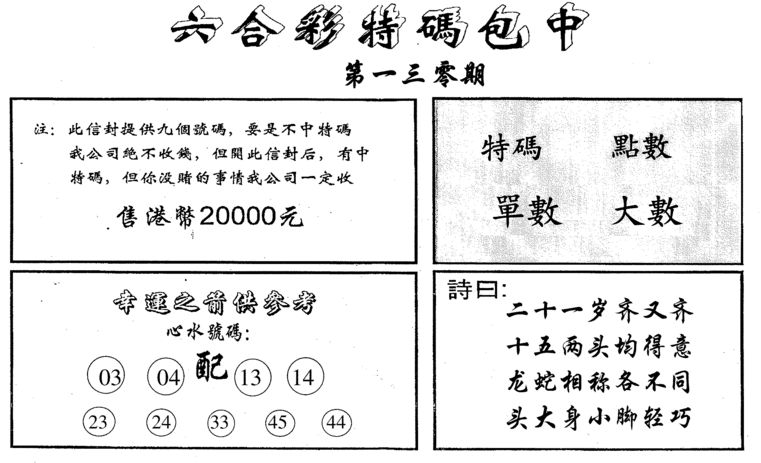 六合彩特碼包中
第一三零期
注：此信封提供九個號碼，要是不中特碼
我公司絕不收錢，但開此信封后，有中
特碼，但你没賭的事情我公司一定收
售港幣20000元
特碼 點數
單數 大數
幸運之箭供參考
心水號碼：
03 04 配 13 14
23 24 33 45 44
詩曰：
二十一岁齐又齐
十五两头均得意
龙蛇相称各不同
头大身小脚轻巧